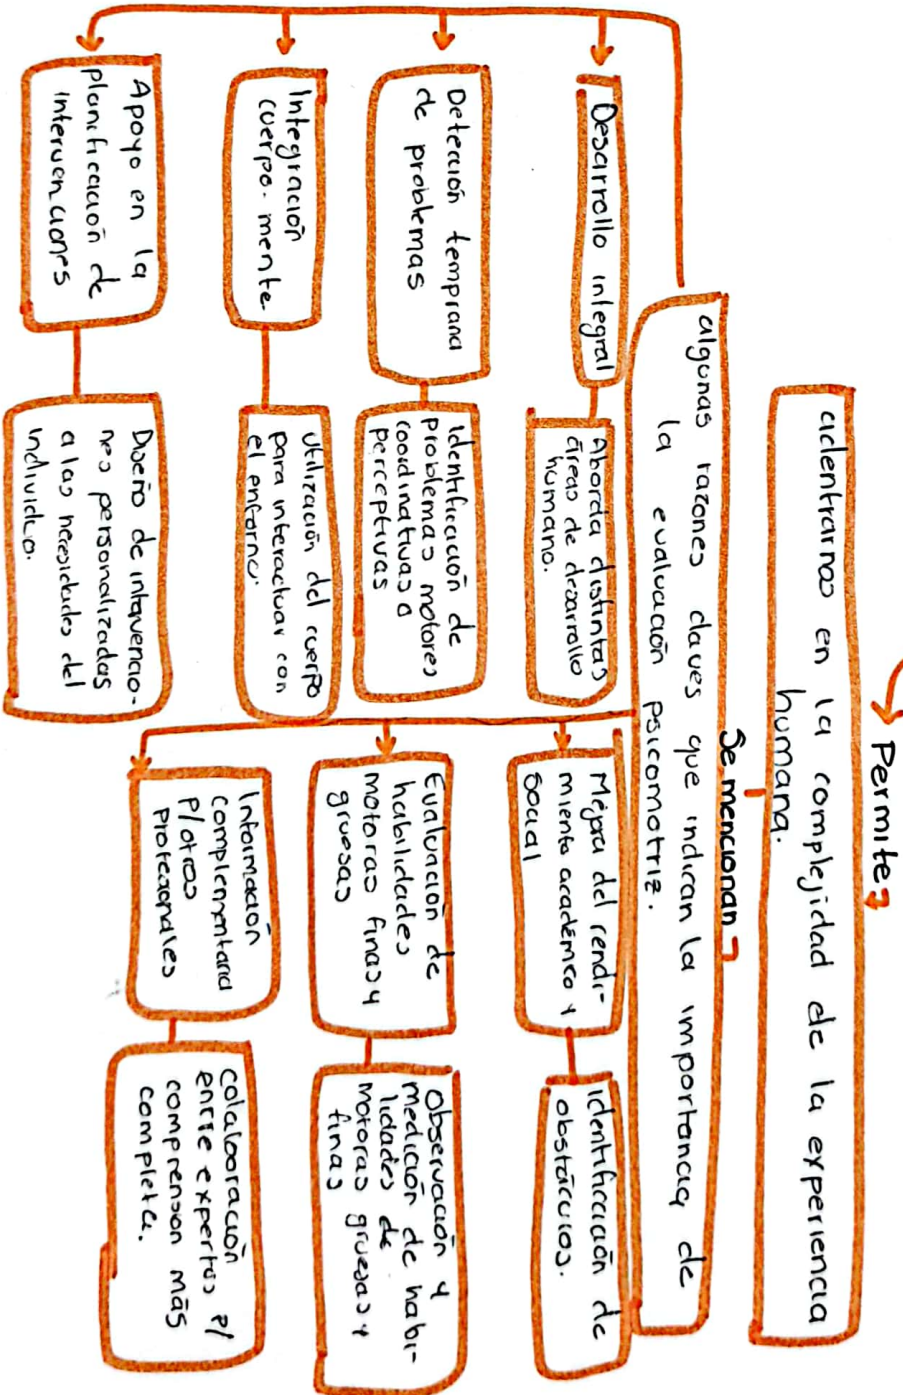 Permite
adentrarno en la complejidad de la experiencia
humana.
Se mencionan
algunas razones claves que indican la importancia de
la evaluación psicomotriz.
Desarrollo integral
Aborda distintas
áreas de desarrollo
humano.
Detección temprana
de problemas
Identificación de
problemas motores
coordinativas o
perceptivas
Integración
cuerpo-mente
Utilización del cuerpo
para interactuar con
el entorno.
Apoyo en la
planificación de
intervenciones
Diseño de intervencio-
nes personalizadas
a las necesidades del
individuo.
Mejora del rendi-
miento académico y
social
identificación de
obstáculos.
Evaluación de
habilidades
motoras finas y
gruesas
Observación y
medición de habi-
lidades de
motoras gruesas y
finas
Información
complementaria
p/otros
profesionales
colaboración
entre expertos p/
comprension más
completa.